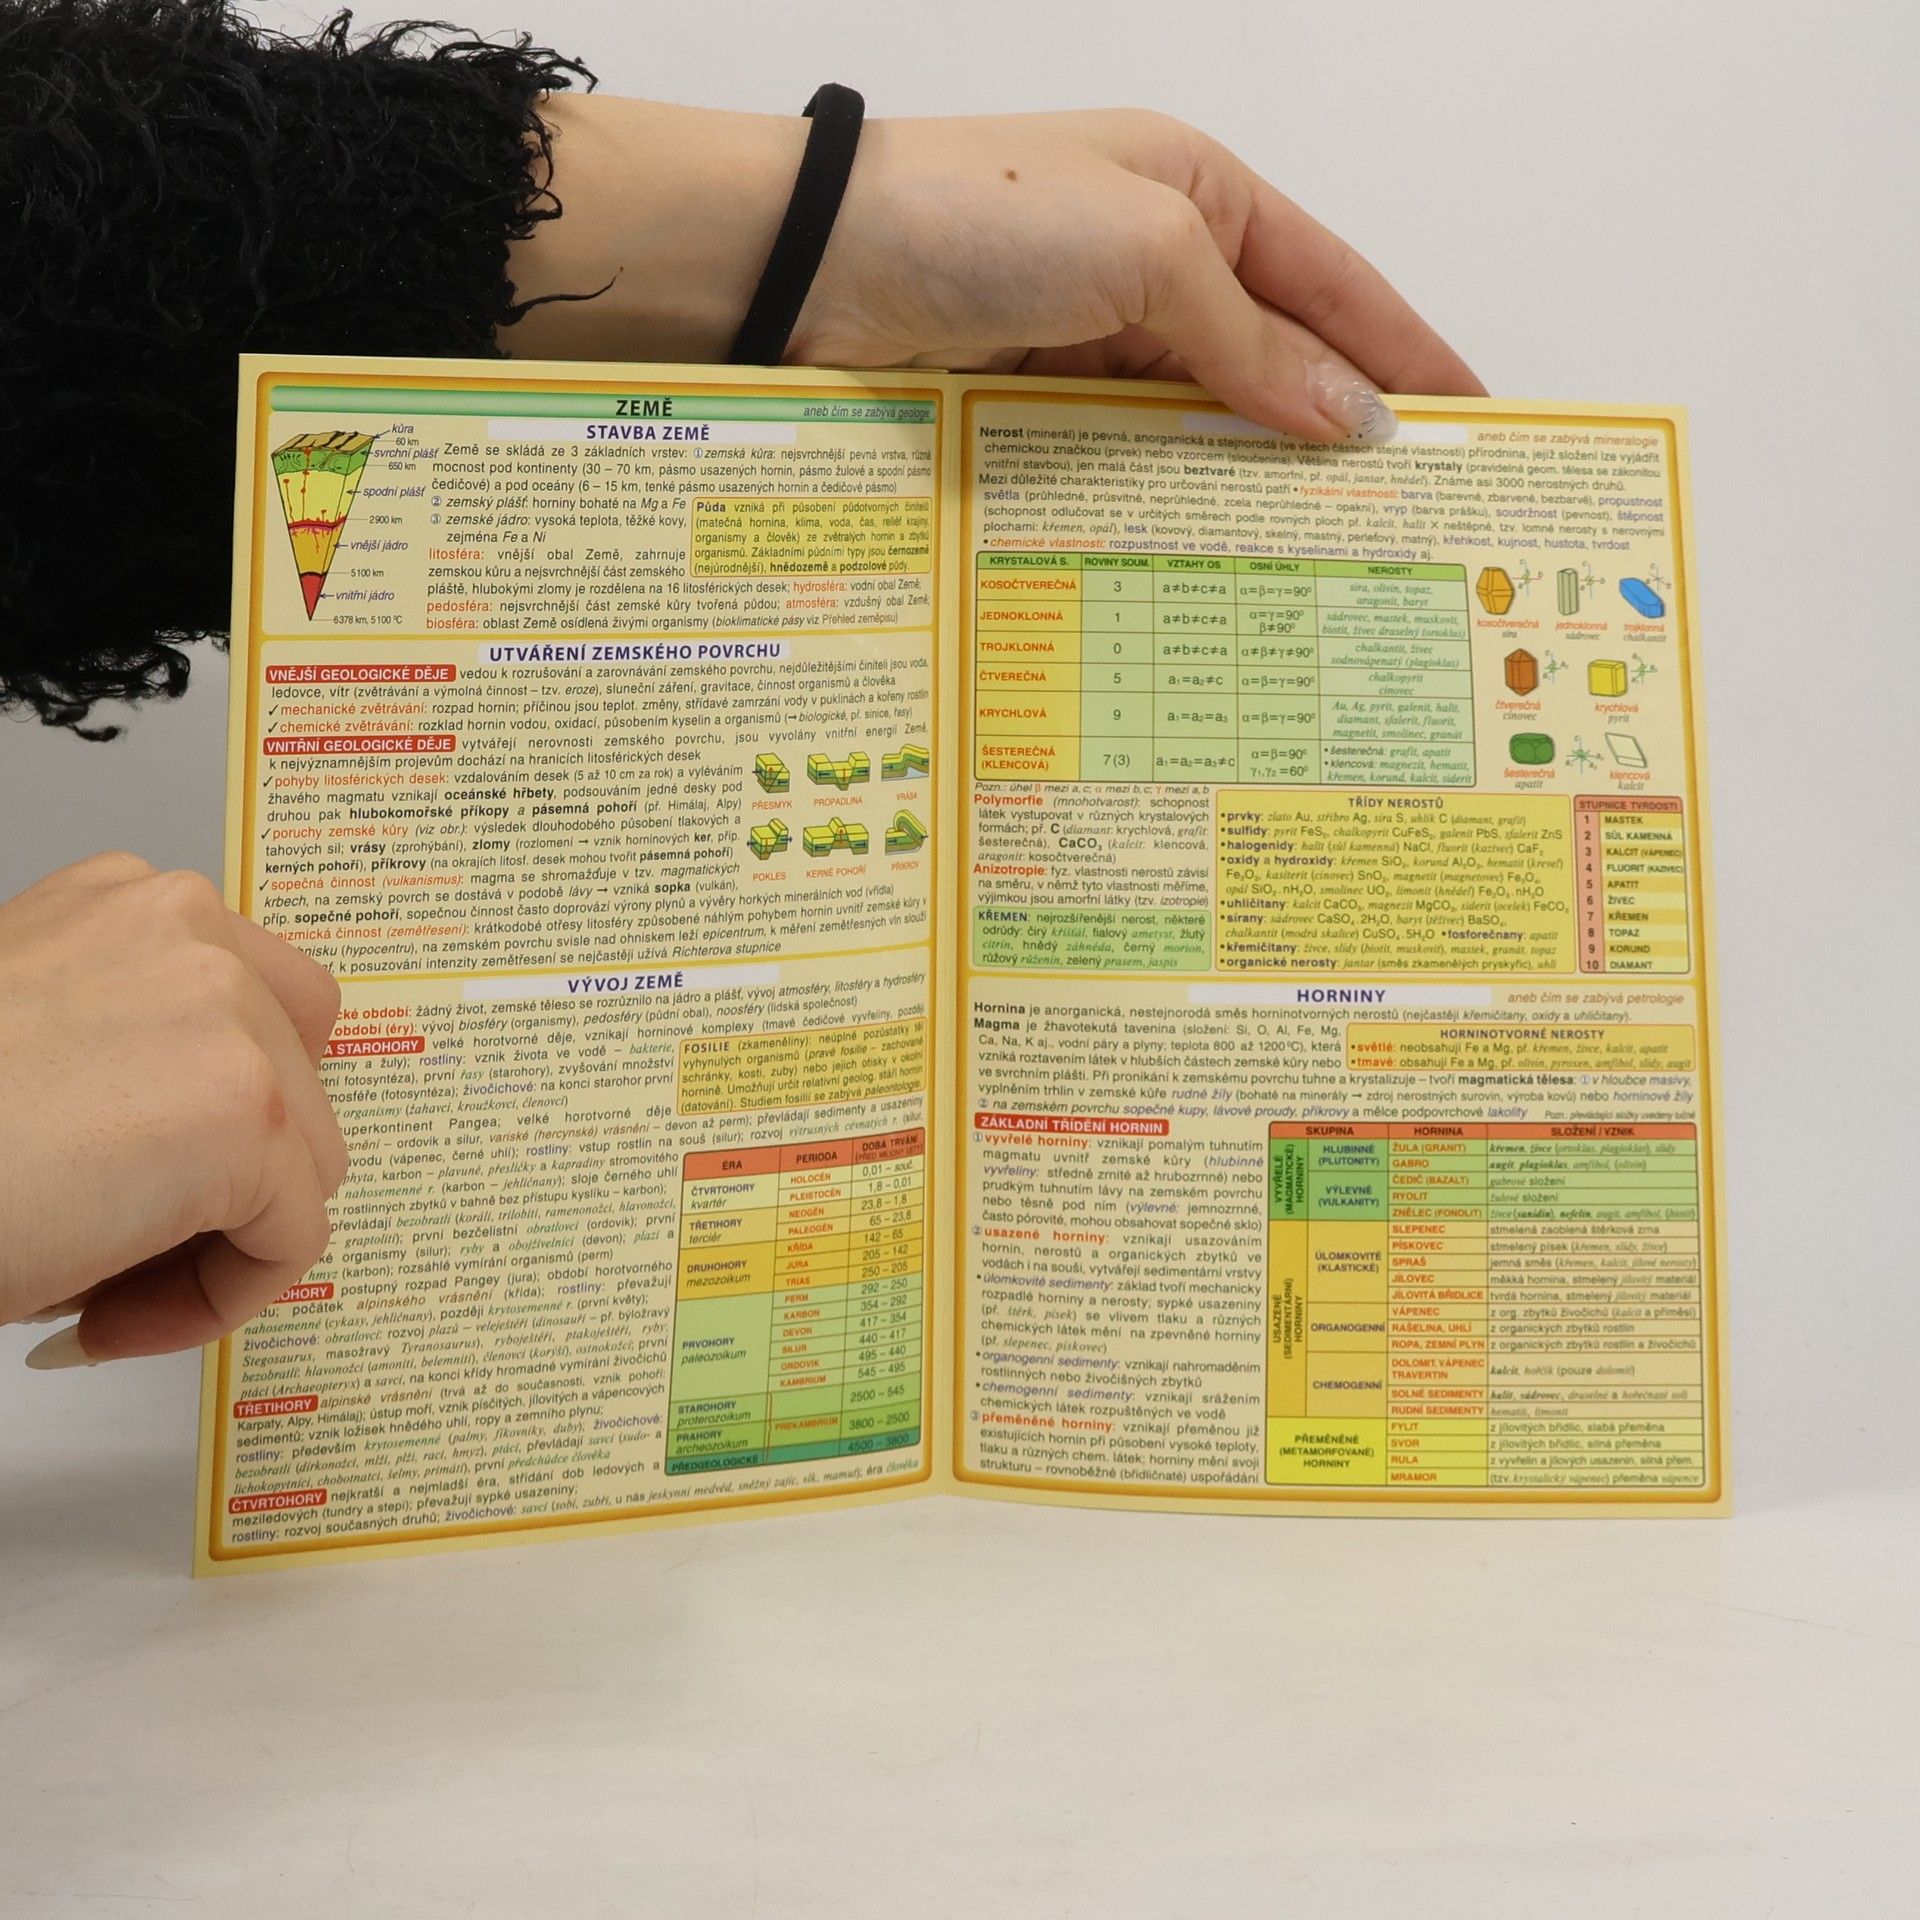 ZEMĚ
aneb čím se zabývá geologie
STAVBA ZEMĚ
kůra
60 km
svrchní plášť
650 km
spodní plášť
2900 km
vnější jádro
5100 km
vnitřní jádro
6378 km, 5100 ºC
Země se skládá ze 3 základních vrstev: ① zemská kůra: nejsvrchnější pevná vrstva, různá
mocnost pod kontinenty (30 – 70 km, pásmo usazených hornin, pásmo žulové a spodní pásmo
čedičové) a pod oceány (6 – 15 km, tenké pásmo usazených hornin a čedičové pásmo)
② zemský plášť: horniny bohaté na Mg a Fe
③ zemské jádro: vysoká teplota, těžké kovy,
zejména Fe a Ni
litosféra: vnější obal Země, zahrnuje
zemskou kůru a nejsvrchnější část zemského
pláště, hlubokými zlomy je rozdělena na 16 litosférických desek; hydrosféra: vodní obal Země;
pedosféra: nejsvrchnější část zemské kůry tvořená půdou; atmosféra: vzdušný obal Země;
biosféra: oblast Země osídlená živými organismy (bioklimatické pásy viz Přehled zeměpisu)
Půda vzniká při působení půdotvorných činitelů
(matečná hornina, klima, voda, čas, reliéf krajiny,
organismy a člověk) ze zvětralých hornin a zbytků
organismů. Základními půdními typy jsou černozemě
(nejúrodnější), hnědozemě a podzolové půdy.
UTVÁŘENÍ ZEMSKÉHO POVRCHU
VNĚJŠÍ GEOLOGICKÉ DĚJE vedou k rozrušování a zarovnávání zemského povrchu, nejdůležitějšími činiteli jsou voda,
ledovce, vítr (zvětrávání a výmolná činnost – tzv. eroze), sluneční záření, gravitace, činnost organismů a člověka
✓ mechanické zvětrávání: rozpad hornin; příčinou jsou teplot. změny, střídavé zamrzání vody v puklinách a kořeny rostlin
✓ chemické zvětrávání: rozklad hornin vodou, oxidací, působením kyselin a organismů (→ biologické, př. sinice, řasy)
VNITŘNÍ GEOLOGICKÉ DĚJE vytvářejí nerovnosti zemského povrchu, jsou vyvolány vnitřní energií Země,
k nejvýznamnějším projevům dochází na hranicích litosférických desek
✓ pohyby litosférických desek: vzdalováním desek (5 až 10 cm za rok) a vyléváním
žhavého magmatu vznikají oceánské hřbety, podsouváním jedné desky pod
druhou pak hlubokomořské příkopy a pásemná pohoří (př. Himálaj, Alpy)
✓ poruchy zemské kůry (viz obr.): výsledek dlouhodobého působení tlakových a
tahových sil; vrásy (zprohýbání), zlomy (rozlomení → vznik horninových ker, příp.
kerných pohoří), příkrovy (na okrajích litosf. desek mohou tvořit pásemná pohoří)
✓ sopečná činnost (vulkanismus): magma se shromažďuje v tzv. magmatických
krbech, na zemský povrch se dostává v podobě lávy → vzniká sopka (vulkán),
příp. sopečné pohoří, sopečnou činnost často doprovází výrony plynů a vývěry horkých minerálních vod (vřídla)
eizmická činnost (zemětřesení): krátkodobé otřesy litosféry způsobené náhlým pohybem hornin uvnitř zemské kůry v
hnisku (hypocentru), na zemském povrchu svisle nad ohniskem leží epicentrum, k měření zemětřesných vln slouží
k posuzování intenzity zemětřesení se nejčastěji užívá Richterova stupnice
PŘESMYK
PROPADLINA
VRÁSA
POKLES
KERNÉ POHOŘÍ
PŘÍKROV
VÝVOJ ZEMĚ
cké období: žádný život, zemské těleso se rozrůznilo na jádro a plášť, vývoj atmosféry, litosféry a hydrosféry
období (éry): vývoj biosféry (organismy), pedosféry (půdní obal), noosféry (lidská společnost)
A STAROHORY velké horotvorné děje, vznikají horninové komplexy (tmavé čedičové vyvřeliny, později
orniny a žuly); rostliny: vznik života ve vodě – bakterie,
tní fotosyntéza), první řasy (starohory), zvyšování množství
mosféře (fotosyntéza); živočichové: na konci starohor první
é organismy (žahavci, kroužkovci, členovci)
FOSILIE (zkameněliny): neúplné pozůstatky těl
vyhynulých organismů (pravé fosilie – zachované
schránky, kosti, zuby) nebo jejich otisky v okolní
hornině. Umožňují určit relativní geolog. stáří hornin
(datování). Studiem fosilií se zabývá paleontologie.
uperkontinent Pangea; velké horotvorné děje
snění – ordovik a silur, variské (hercynské) vrásnění – devon až perm); převládají sedimenty a usazeniny
vodu (vápenec, černé uhlí); rostliny: vstup rostlin na souš (silur); rozvoj výtrusných cévnatých r. (silur,
phyta, karbon – plavuně, přesličky a kapradiny stromovitého
nahosemenné r. (karbon – jehličnany); sloje černého uhlí
m rostlinných zbytků v bahně bez přístupu kyslíku – karbon);
převládají bezobratlí (koráli, trilobiti, ramenonožci, hlavonožci,
– graptoliti); první bezčelistní obratlovci (ordovik); první
ké organismy (silur); ryby a obojživelníci (devon); plazi a
hmyz (karbon); rozsáhlé vymírání organismů (perm)
OHORY postupný rozpad Pangey (jura); období horotvorného
idu; počátek alpinského vrásnění (křída); rostliny: převažují
nahosemenné (cykasy, jehličnany), později krytosemenné r. (první květy);
živočichové: obratlovci: rozvoj plazů – veleještěři (dinosauři – př. býložravý
Stegosaurus, masožravý Tyranosaurus), ryboještěři, ptakoještěři, ryby;
bezobratlí: hlavonožci (amoniti, belemniti), členovci (korýši), ostnokožci; první
ptáci (Archaeopteryx) a savci, na konci křídy hromadné vymírání živočichů
TŘETIHORY alpinské vrásnění (trvá až do současnosti, vznik pohoří:
Karpaty, Alpy, Himálaj); ústup moří, vznik písčitých, jílovitých a vápencových
sedimentů; vznik ložisek hnědého uhlí, ropy a zemního plynu;
rostliny: především krytosemenné (palmy, fíkovníky, duby); živočichové:
bezobratlí (dírkonožci, mlži, plži, raci, hmyz), ptáci, převládají savci (sudo- a
lichokopytníci, chobotnatci, šelmy, primáti), první předchůdce člověka
ČTVRTOHORY nejkratší a nejmladší éra, střídání dob ledových a
meziledových (tundry a stepi); převažují sypké usazeniny;
rostliny: rozvoj současných druhů; živočichové: savci (sobi, zubři, u nás jeskynní medvěd, sněžný zajíc, vlk, mamut); éra člověka
ÉRA PERIODA DOBA TRVÁNÍ
(PŘED MILIONY LET)
ČTVRTOHORY kvartér HOLOCÉN 0,01 – souč.
PLEISTOCÉN 1,8 – 0,01
TŘETIHORY terciér NEOGÉN 23,8 – 1,8
PALEOGÉN 65 – 23,8
DRUHOHORY mezozoikum KŘÍDA 142 – 65
JURA 205 – 142
TRIAS 250 – 205
PRVOHORY paleozoikum PERM 292 – 250
KARBON 354 – 292
DEVON 417 – 354
SILUR 440 – 417
ORDOVIK 495 – 440
KAMBRIUM 545 – 495
STAROHORY proterozoikum PREKAMBRIUM 2500 – 545
PRAHORY archeozoikum 3800 – 2500
PŘEDGEOLOGICKÉ 4500 – 3800
aneb čím se zabývá mineralogie
Nerost (minerál) je pevná, anorganická a stejnorodá (ve všech částech stejné vlastnosti) přírodnina, jejíž složení lze vyjádřit
chemickou značkou (prvek) nebo vzorcem (sloučenina). Většina nerostů tvoří krystaly (pravidelná geom. tělesa se zákonitou
vnitřní stavbou), jen malá část jsou beztvaré (tzv. amorfní, př. opál, jantar, hnědel). Známe asi 3000 nerostných druhů.
Mezi důležité charakteristiky pro určování nerostů patří • fyzikální vlastnosti: barva (barevné, zbarvené, bezbarvé), propustnost
světla (průhledné, průsvitné, neprůhledné, zcela neprůhledné – opakní), vryp (barva prášku), soudržnost (pevnost), štěpnost
(schopnost odlučovat se v určitých směrech podle rovných ploch př. kalcit, halit × neštěpné, tzv. lomné nerosty s nerovnými
plochami: křemen, opál), lesk (kovový, diamantový, skelný, mastný, perleťový, matný), křehkost, kujnost, hustota, tvrdost
• chemické vlastnosti: rozpustnost ve vodě, reakce s kyselinami a hydroxidy aj.
KRYSTALOVÁ S. ROVINY SOUM. VZTAHY OS OSNÍ ÚHLY NEROSTY
KOSOČTVEREČNÁ 3 a≠b≠c≠a α=β=γ=90º síra, olivín, topaz, aragonit, baryt
JEDNOKLONNÁ 1 a≠b≠c≠a α=γ=90º β≠90º sádrovec, mastek, muskovit, biotit, živec draselný (ortoklas)
TROJKLONNÁ 0 a≠b≠c≠a α≠β≠γ≠90º chalkantit, živec sodnovápenatý (plagioklas)
ČTVEREČNÁ 5 a₁=a₂≠c α=β=γ=90º chalkopyrit cínovec
KRYCHLOVÁ 9 a₁=a₂=a₃ α=β=γ=90º Au, Ag, pyrit, galenit, halit, diamant, sfalerit, fluorit, magnetit, smolinec, granát
ŠESTEREČNÁ (KLENCOVÁ) 7 (3) a₁=a₂=a₃≠c α=β=90º γ₁,γ₂ =60º • šesterečná: grafit, apatit • klencová: magnezit, hematit, křemen, korund, kalcit, siderit
kosočtverečná síra
jednoklonná sádrovec
trojklonná chalkantit
čtverečná cínovec
krychlová pyrit
šesterečná apatit
klencová kalcit
Pozn.: úhel β mezi a, c; α mezi b, c; γ mezi a, b
Polymorfie (mnohotvarost): schopnost
látek vystupovat v různých krystalových
formách; př. C (diamant: krychlová, grafit:
šesterečná), CaCO₃ (kalcit: klencová,
aragonit: kosočtverečná)
Anizotropie: fyz. vlastnosti nerostů závisí
na směru, v němž tyto vlastnosti měříme,
výjimkou jsou amorfní látky (tzv. izotropie)
KŘEMEN: nejrozšířenější nerost, některé
odrůdy: čirý křišťál, fialový ametyst, žlutý
citrín, hnědý záhněda, černý morion,
růžový růženín, zelený prasem, jaspis
TŘÍDY NEROSTŮ
• prvky: zlato Au, stříbro Ag, síra S, uhlík C (diamant, grafit)
• sulfidy: pyrit FeS₂, chalkopyrit CuFeS₂, galenit PbS, sfalerit ZnS
• halogenidy: halit (sůl kamenná) NaCl, fluorit (kazivec) CaF₂
• oxidy a hydroxidy: křemen SiO₂, korund Al₂O₃, hematit (krevel)
Fe₂O₃, kasiterit (cínovec) SnO₂, magnetit (magnetovec) Fe₃O₄,
opál SiO₂.nH₂O, smolinec UO₂, limonit (hnědel) Fe₂O₃.nH₂O
• uhličitany: kalcit CaCO₃, magnezit MgCO₃, siderit (ocelek) FeCO₃
• sírany: sádrovec CaSO₄.2H₂O, baryt (těživec) BaSO₄,
chalkantit (modrá skalice) CuSO₄.5H₂O • fosforečnany: apatit
• křemičitany: živce, slídy (biotit, muskovit), mastek, granát, topaz
• organické nerosty: jantar (směs zkamenělých pryskyřic), uhlí
STUPNICE TVRDOSTI
1 MASTEK
2 SŮL KAMENNÁ
3 KALCIT (VÁPENEC)
4 FLUORIT (KAZIVEC)
5 APATIT
6 ŽIVEC
7 KŘEMEN
8 TOPAZ
9 KORUND
10 DIAMANT
HORNINY
aneb čím se zabývá petrologie
Hornina je anorganická, nestejnorodá směs horninotvorných nerostů (nejčastěji křemičitany, oxidy a uhličitany).
Magma je žhavotekutá tavenina (složení: Si, O, Al, Fe, Mg,
Ca, Na, K aj., vodní páry a plyny; teplota 800 až 1200 ºC), která
vzniká roztavením látek v hlubších částech zemské kůry nebo
ve svrchním plášti. Při pronikání k zemskému povrchu tuhne a krystalizuje – tvoří magmatická tělesa: ① v hloubce masivy,
vyplněním trhlin v zemské kůře rudné žíly (bohaté na minerály → zdroj nerostných surovin, výroba kovů) nebo horninové žíly
② na zemském povrchu sopečné kupy, lávové proudy, příkrovy a mělce podpovrchové lakolity Pozn.: převládající složky uvedeny tučně
HORNINOTVORNÉ NEROSTY
• světlé: neobsahují Fe a Mg, př. křemen, živce, kalcit, apatit
• tmavé: obsahují Fe a Mg, př. olivín, pyroxen, amfibol, slídy, augit
ZÁKLADNÍ TŘÍDĚNÍ HORNIN
① vyvřelé horniny: vznikají pomalým tuhnutím
magmatu uvnitř zemské kůry (hlubinné
vyvřeliny: středně zrnité až hrubozrnné) nebo
prudkým tuhnutím lávy na zemském povrchu
nebo těsně pod ním (výlevné: jemnozrnné,
často pórovité, mohou obsahovat sopečné sklo)
② usazené horniny: vznikají usazováním
hornin, nerostů a organických zbytků ve
vodách i na souši, vytvářejí sedimentární vrstvy
• úlomkovité sedimenty: základ tvoří mechanicky
rozpadlé horniny a nerosty; sypké usazeniny
(př. štěrk, písek) se vlivem tlaku a různých
chemických látek mění na zpevněné horniny
(př. slepenec, pískovec)
• organogenní sedimenty: vznikají nahromaděním
rostlinných nebo živočišných zbytků
• chemogenní sedimenty: vznikají srážením
chemických látek rozpuštěných ve vodě
③ přeměněné horniny: vznikají přeměnou již
existujících hornin při působení vysoké teploty,
tlaku a různých chem. látek; horniny mění svoji
strukturu – rovnoběžné (břidličnaté) uspořádání
SKUPINA HORNINA SLOŽENÍ / VZNIK
VYVŘELÉ (MAGMATICKÉ) HORNINY
HLUBINNÉ (PLUTONITY) ŽULA (GRANIT) křemen, živce (ortoklas, plagioklas), slídy
GABRO augit, plagioklas, amfibol, (olivín)
VÝLEVNÉ (VULKANITY) ČEDIČ (BAZALT) gabrové složení
RYOLIT žulové složení
ZNĚLEC (FONOLIT) živce (sanidin), nefelín, augit, amfibol, (biotit)
USAZENÉ (SEDIMENTÁRNÍ) HORNINY
ÚLOMKOVITÉ (KLASTICKÉ) SLEPENEC stmelená zaoblená štěrková zrna
PÍSKOVEC stmelený písek (křemen, slídy, živce)
SPRAŠ jemná směs (křemen, kalcit, jílové nerosty)
JÍLOVEC měkká hornina, stmelený jílovitý materiál
JÍLOVITÁ BŘIDLICE tvrdá hornina, stmelený jílovitý materiál
ORGANOGENNÍ VÁPENEC z org. zbytků živočichů (kalcit a příměsi)
RAŠELINA, UHLÍ z organických zbytků rostlin
ROPA, ZEMNÍ PLYN z organických zbytků rostlin a živočichů
CHEMOGENNÍ DOLOMIT, VÁPENEC TRAVERTIN kalcit, hořčík (pouze dolomit)
SOLNÉ SEDIMENTY halit, sádrovec, draselné a hořečnaté soli
RUDNÍ SEDIMENTY hematit, limonit
PŘEMĚNĚNÉ (METAMORFOVANÉ) HORNINY
FYLIT z jílovitých břidlic, slabá přeměna
SVOR z jílovitých břidlic, silná přeměna
RULA z vyvřelin a jílových usazenin, silná přem.
MRAMOR (tzv. krystalický vápenec) přeměna vápence